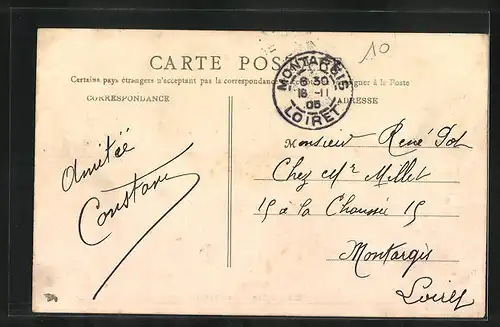 10
CARTE POS
Certains pays étrangers n'acceptent pas la correspondance gner à la Poste
CORRESPONDANCE
ADRESSE
MONTARGIS
6 30
16 -11
05
LOIRET
Amitié
Constant
Monsieur René
Chez Mr Millet
15 à la Chaussée 15
Montargis
Loiret